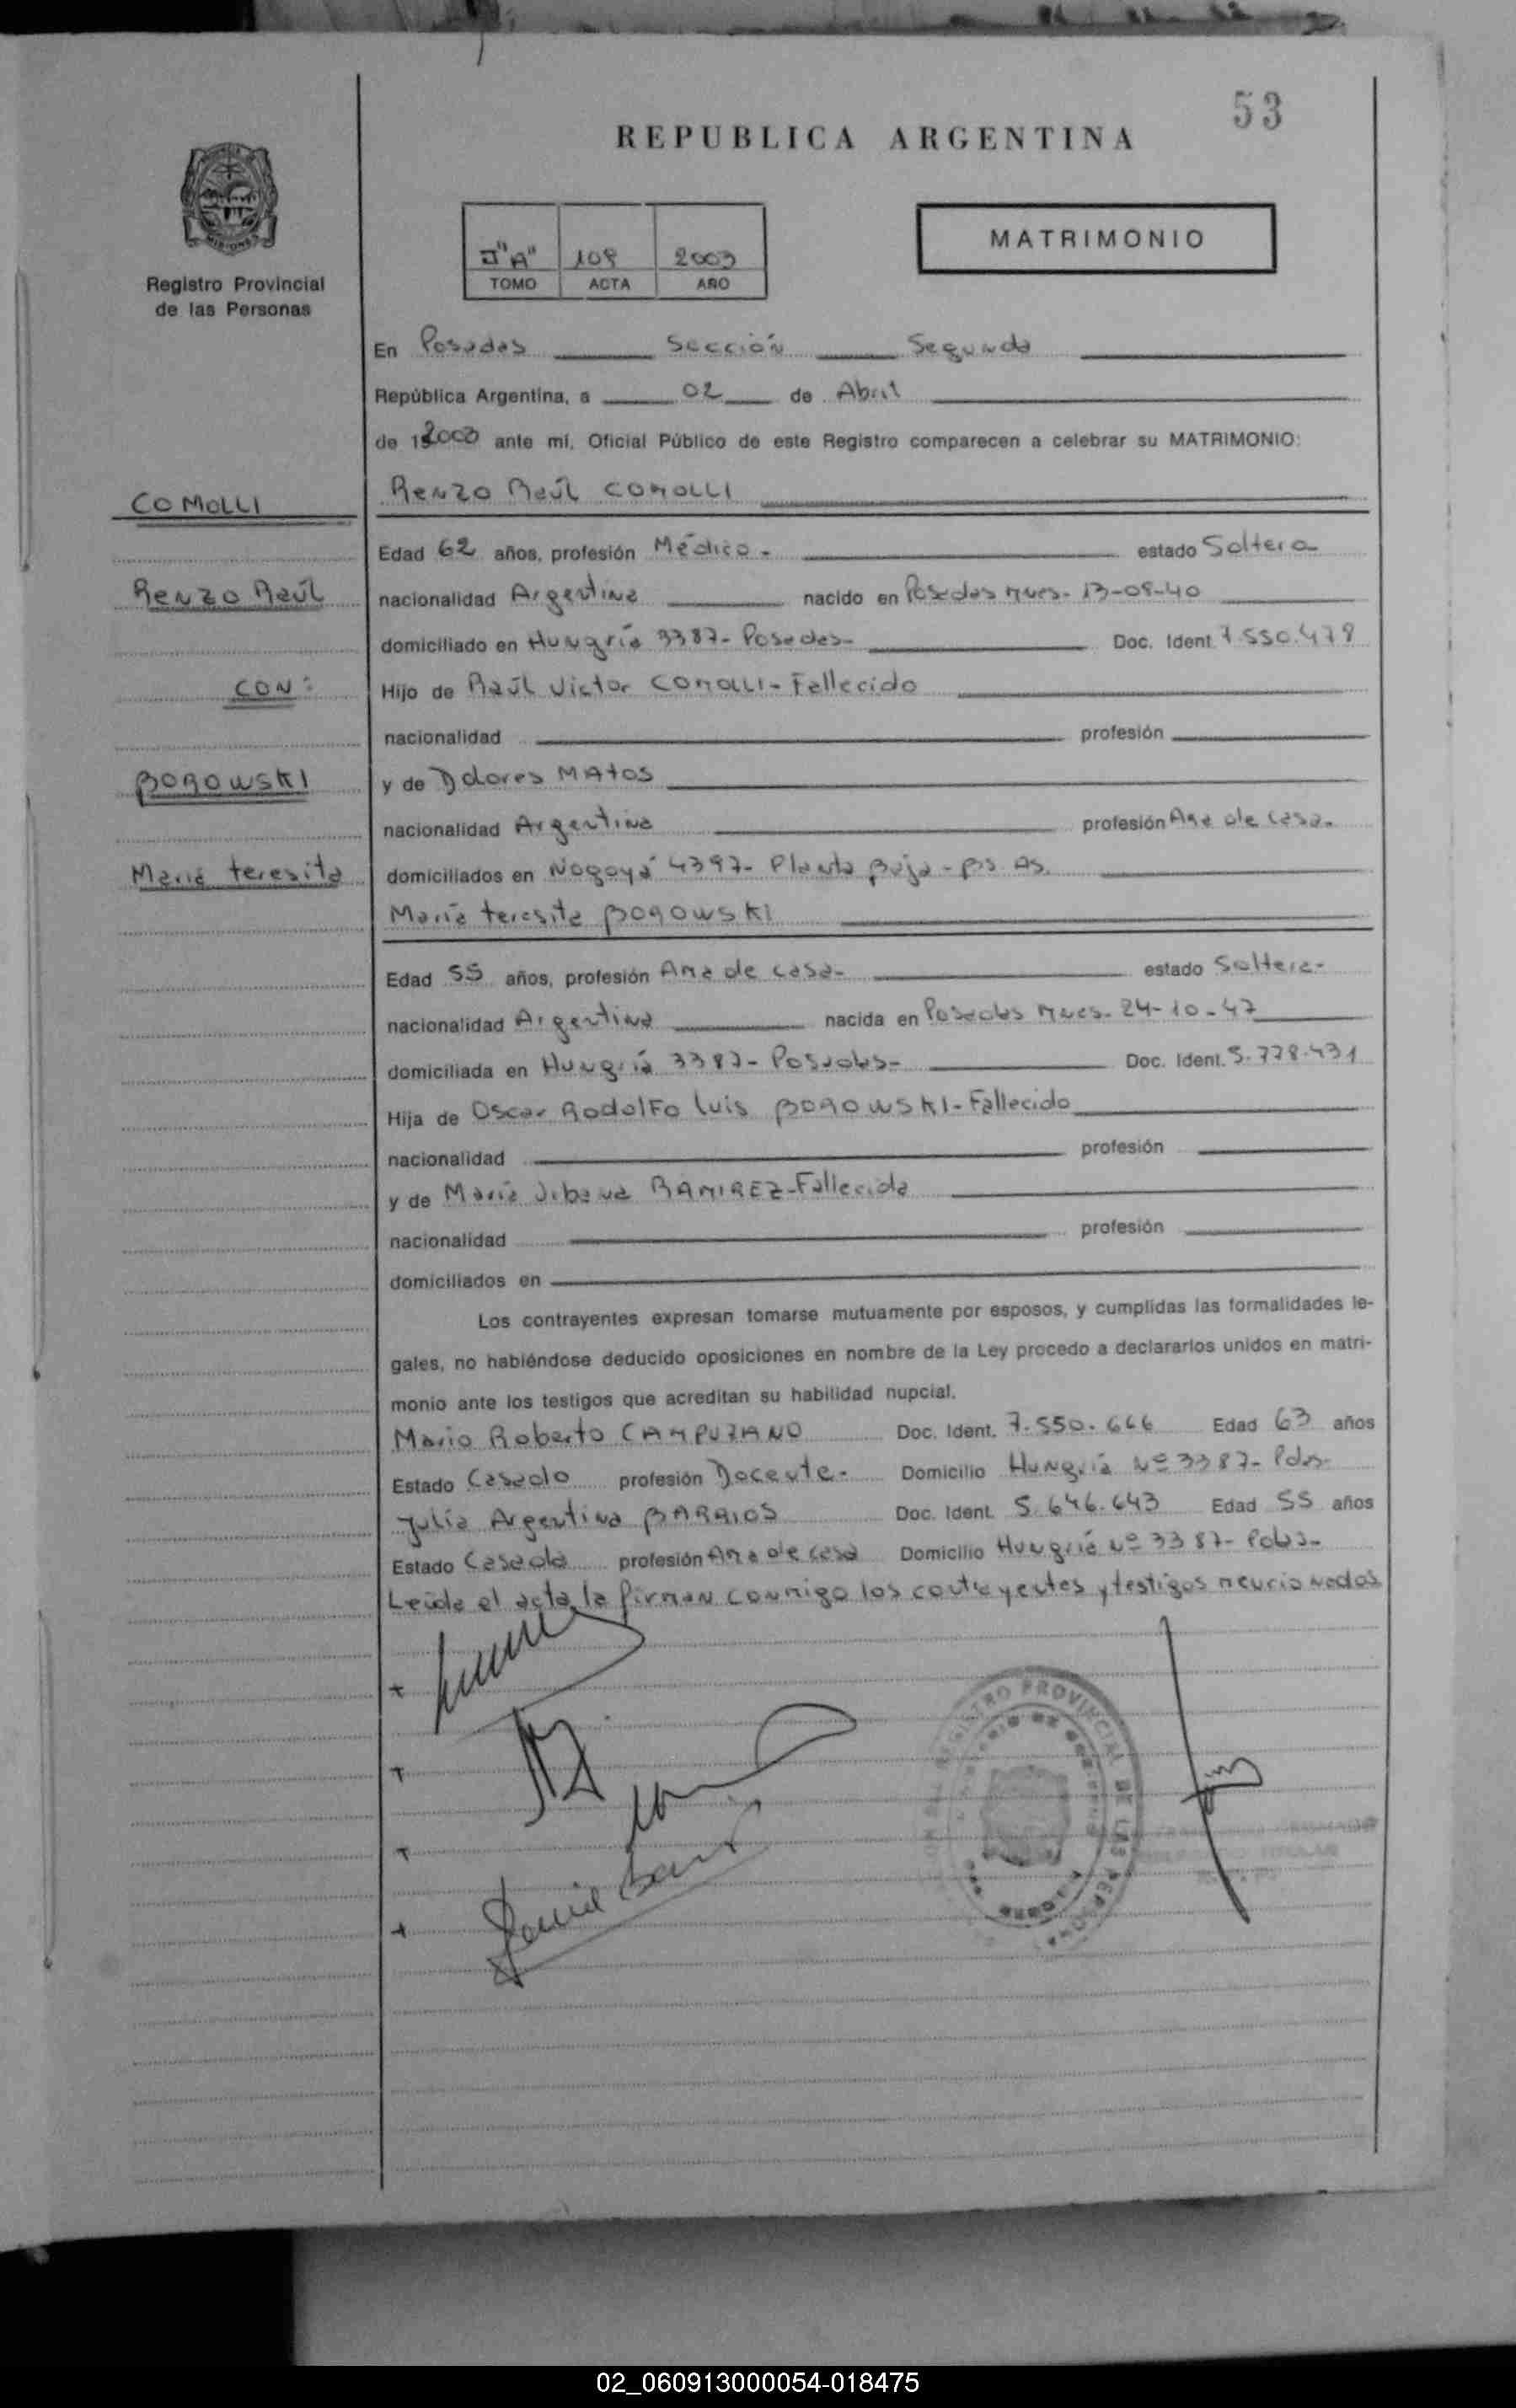 53
REPUBLICA ARGENTINA
MATRIMONIO
"A" 108 2003
TOMO ACTA AÑO
Registro Provincial
de las Personas
En Posadas Sección Segunda
República Argentina, a 02 de Abril
de 2003 ante mí, Oficial Público de este Registro comparecen a celebrar su MATRIMONIO:
COMOLLI
Renzo Raúl
CON:
BOROWSKI
María teresita
Renzo Raúl COMOLLI
Edad 62 años, profesión Médico - estado Soltero
nacionalidad Argentina nacido en Posadas Mnes. 13-08-40
domiciliado en Hungría 3387- Posadas- Doc. Ident. 7.550.478
Hijo de Raúl Victor COMOLLI - Fallecido
nacionalidad profesión
y de Dolores MAtos
nacionalidad Argentina profesión Ama de casa.
domiciliados en Nogoyá 4397- Planta Baja - Bs. As.
María teresita BOROWSKI
Edad 55 años, profesión Ama de casa- estado Soltera-
nacionalidad Argentina nacida en Posadas Mnes. 24-10-47
domiciliada en Hungría 3387- Posadas- Doc. Ident. 5.778.431
Hija de Oscar RodolFo luis BOROWSKI - Fallecido
nacionalidad profesión
y de María Urbana RAMIREZ - Fallecida
nacionalidad profesión
domiciliados en
Los contrayentes expresan tomarse mutuamente por esposos, y cumplidas las formalidades le-
gales, no habiéndose deducido oposiciones en nombre de la Ley procedo a declararlos unidos en matri-
monio ante los testigos que acreditan su habilidad nupcial.
Mario Roberto CAMPUZANO Doc. Ident. 7.550.666 Edad 63 años
Estado Casado profesión Docente- Domicilio Hungría Nº 3387- Pdas-
Julia Argentina BARRIOS Doc. Ident. 5.646.643 Edad 55 años
Estado Casada profesión Ama de casa Domicilio Hungría Nº 3387- Pdas-
Leída el acta, la firman conmigo los contrayentes y testigos mencionados
REGISTRO PROVINCIAL DE LAS PERSONAS
02_060913000054-018475